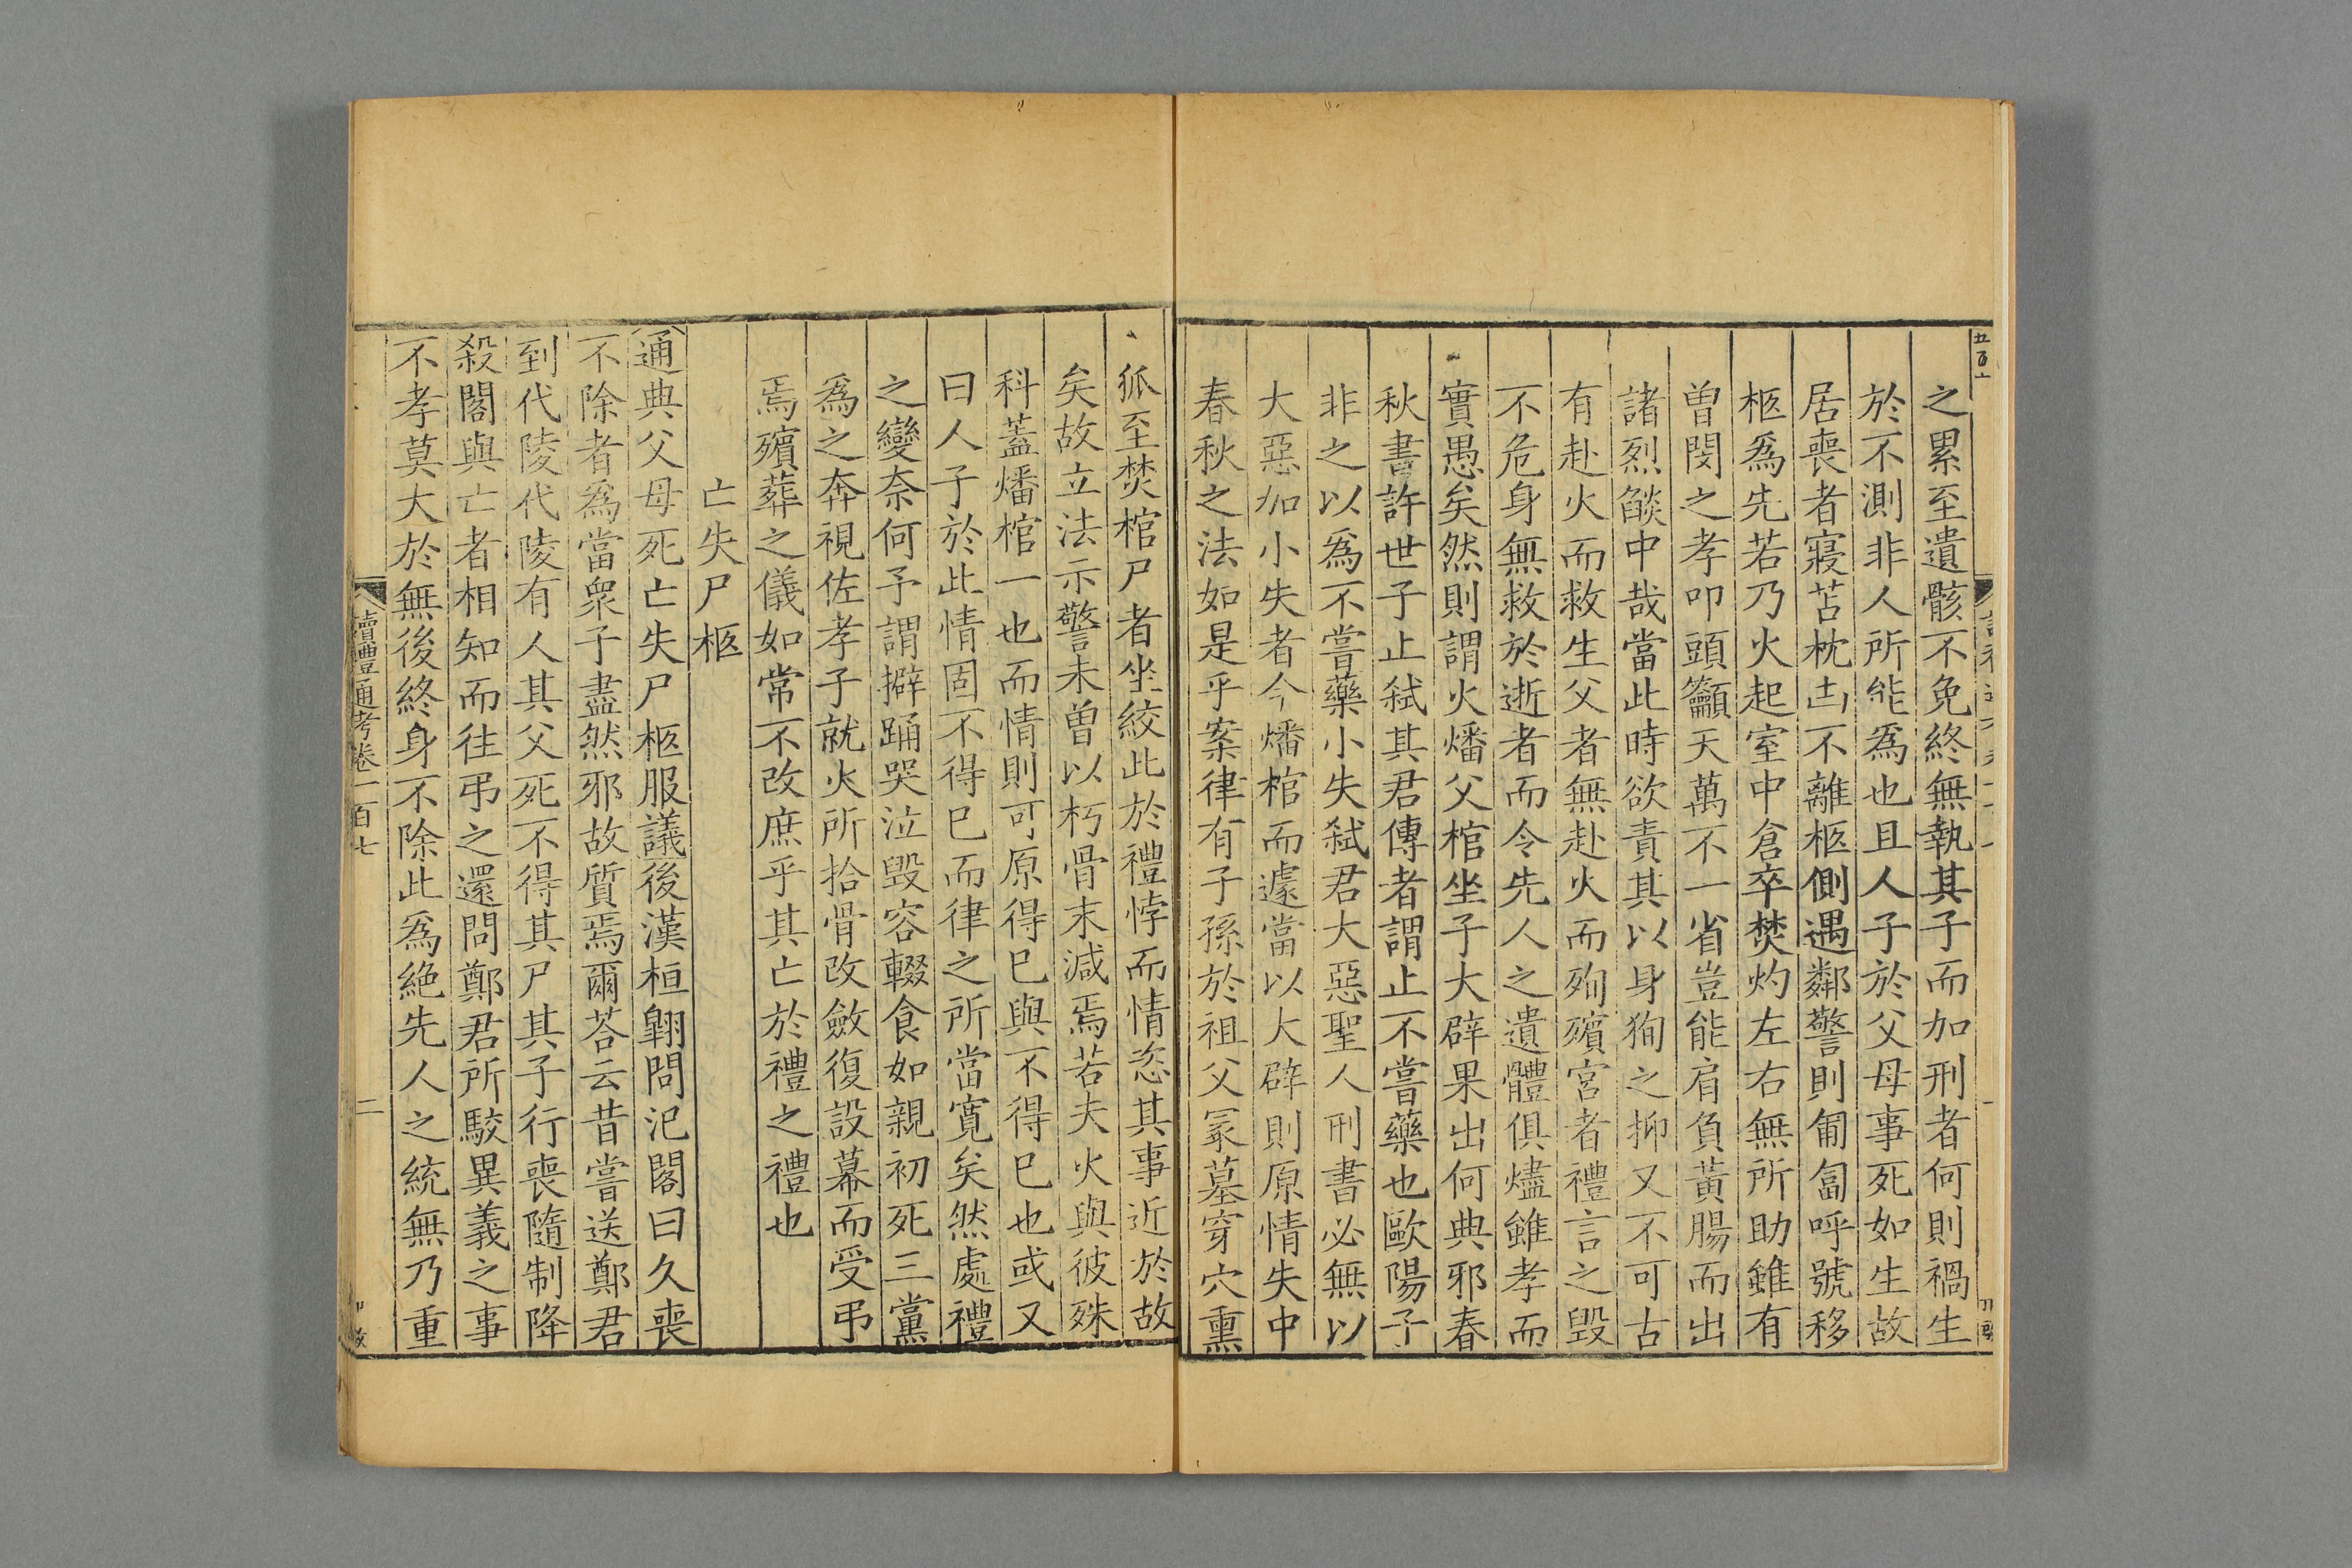 之累至遺骸不免終無執其子而加刑者何則禍生
於不測非人所能爲也且人子於父母事死如生故
居喪者寢苫枕甴不離柩側遇鄰警則匍匐呼號移
柩爲先若乃火起室中倉卒焚灼左右無所助雖有
曽閔之孝叩頭籲天萬不一省豈能肩負黃腸而出
諸烈燄中哉當此時欲責其以身狥之抑又不可古
有赴火而救生父者無赴火而殉殯宮者禮言之毀
不危身無救於逝者而令先人之遺體俱燼雖孝而
實愚矣然則謂火燔父棺坐子大辟果出何典邪春
秋書許世子止弑其君傳者謂止不嘗藥也歐陽子
非之以爲不嘗藥小失弑君大惡聖人刑書必無以
大惡加小失者今燔棺而遽當以大辟則原情失中
春秋之法如是乎案律有子孫於祖父冡墓穿穴熏
狐至焚棺尸者坐絞此於禮悖而情恣其事近於故
矣故立法示警未曽以朽骨末減焉若夫火與彼殊
科蓋燔棺一也而情則可原得巳與不得巳也或又
曰人子於此情固不得巳而律之所當寬矣然處禮
之變奈何予謂擗踊哭泣毀容輟食如親初死三黨
爲之奔視佐孝子就火所拾骨改斂復設幕而受弔
焉殯葬之儀如常不改庶乎其亡於禮之禮也
亡失尸柩
通典父母死亡失尸柩服議後漢桓翱問汜閣曰久喪
不除者爲當衆子盡然邪故質焉爾荅云昔嘗送鄭君
到代陵代陵有人其父死不得其尸其子行喪隨制降
殺閣與亡者相知而往弔之還問鄭君所駮異義之事
不孝莫大於無後終身不除此爲絶先人之統無乃重
讀禮通考卷一百七
二